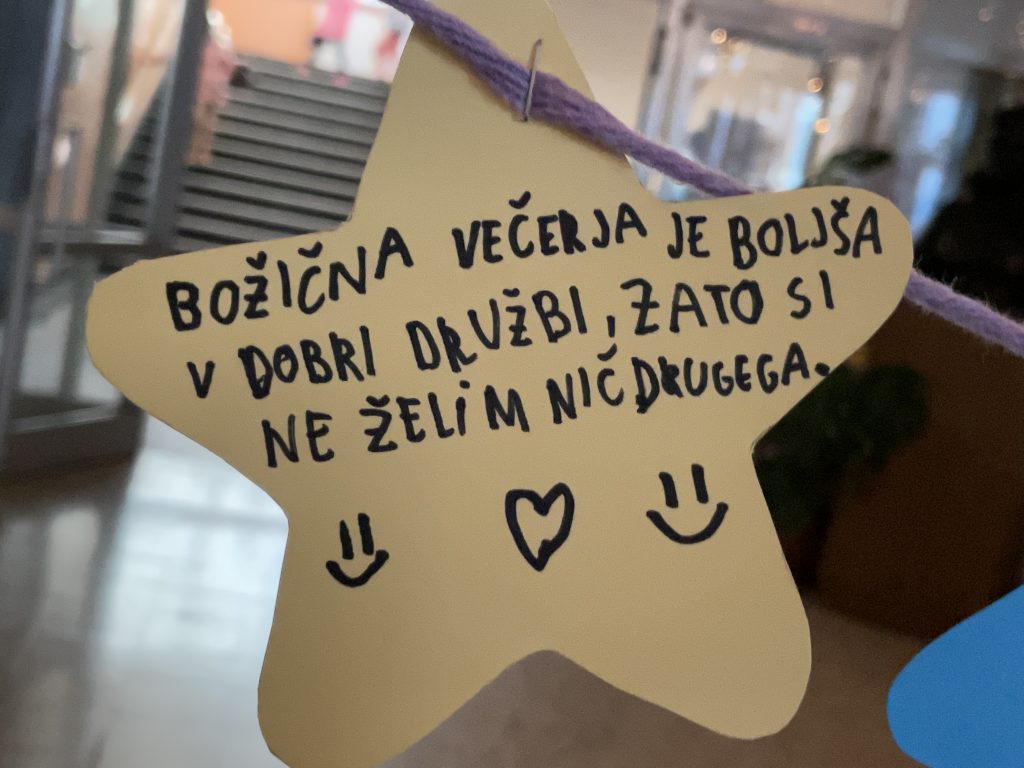 BOŽIČNA VEČERJA JE BOLJŠA
V DOBRI DRUŽBI, ZATO SI
NE ŽELIM NIČ DRUGEGA.